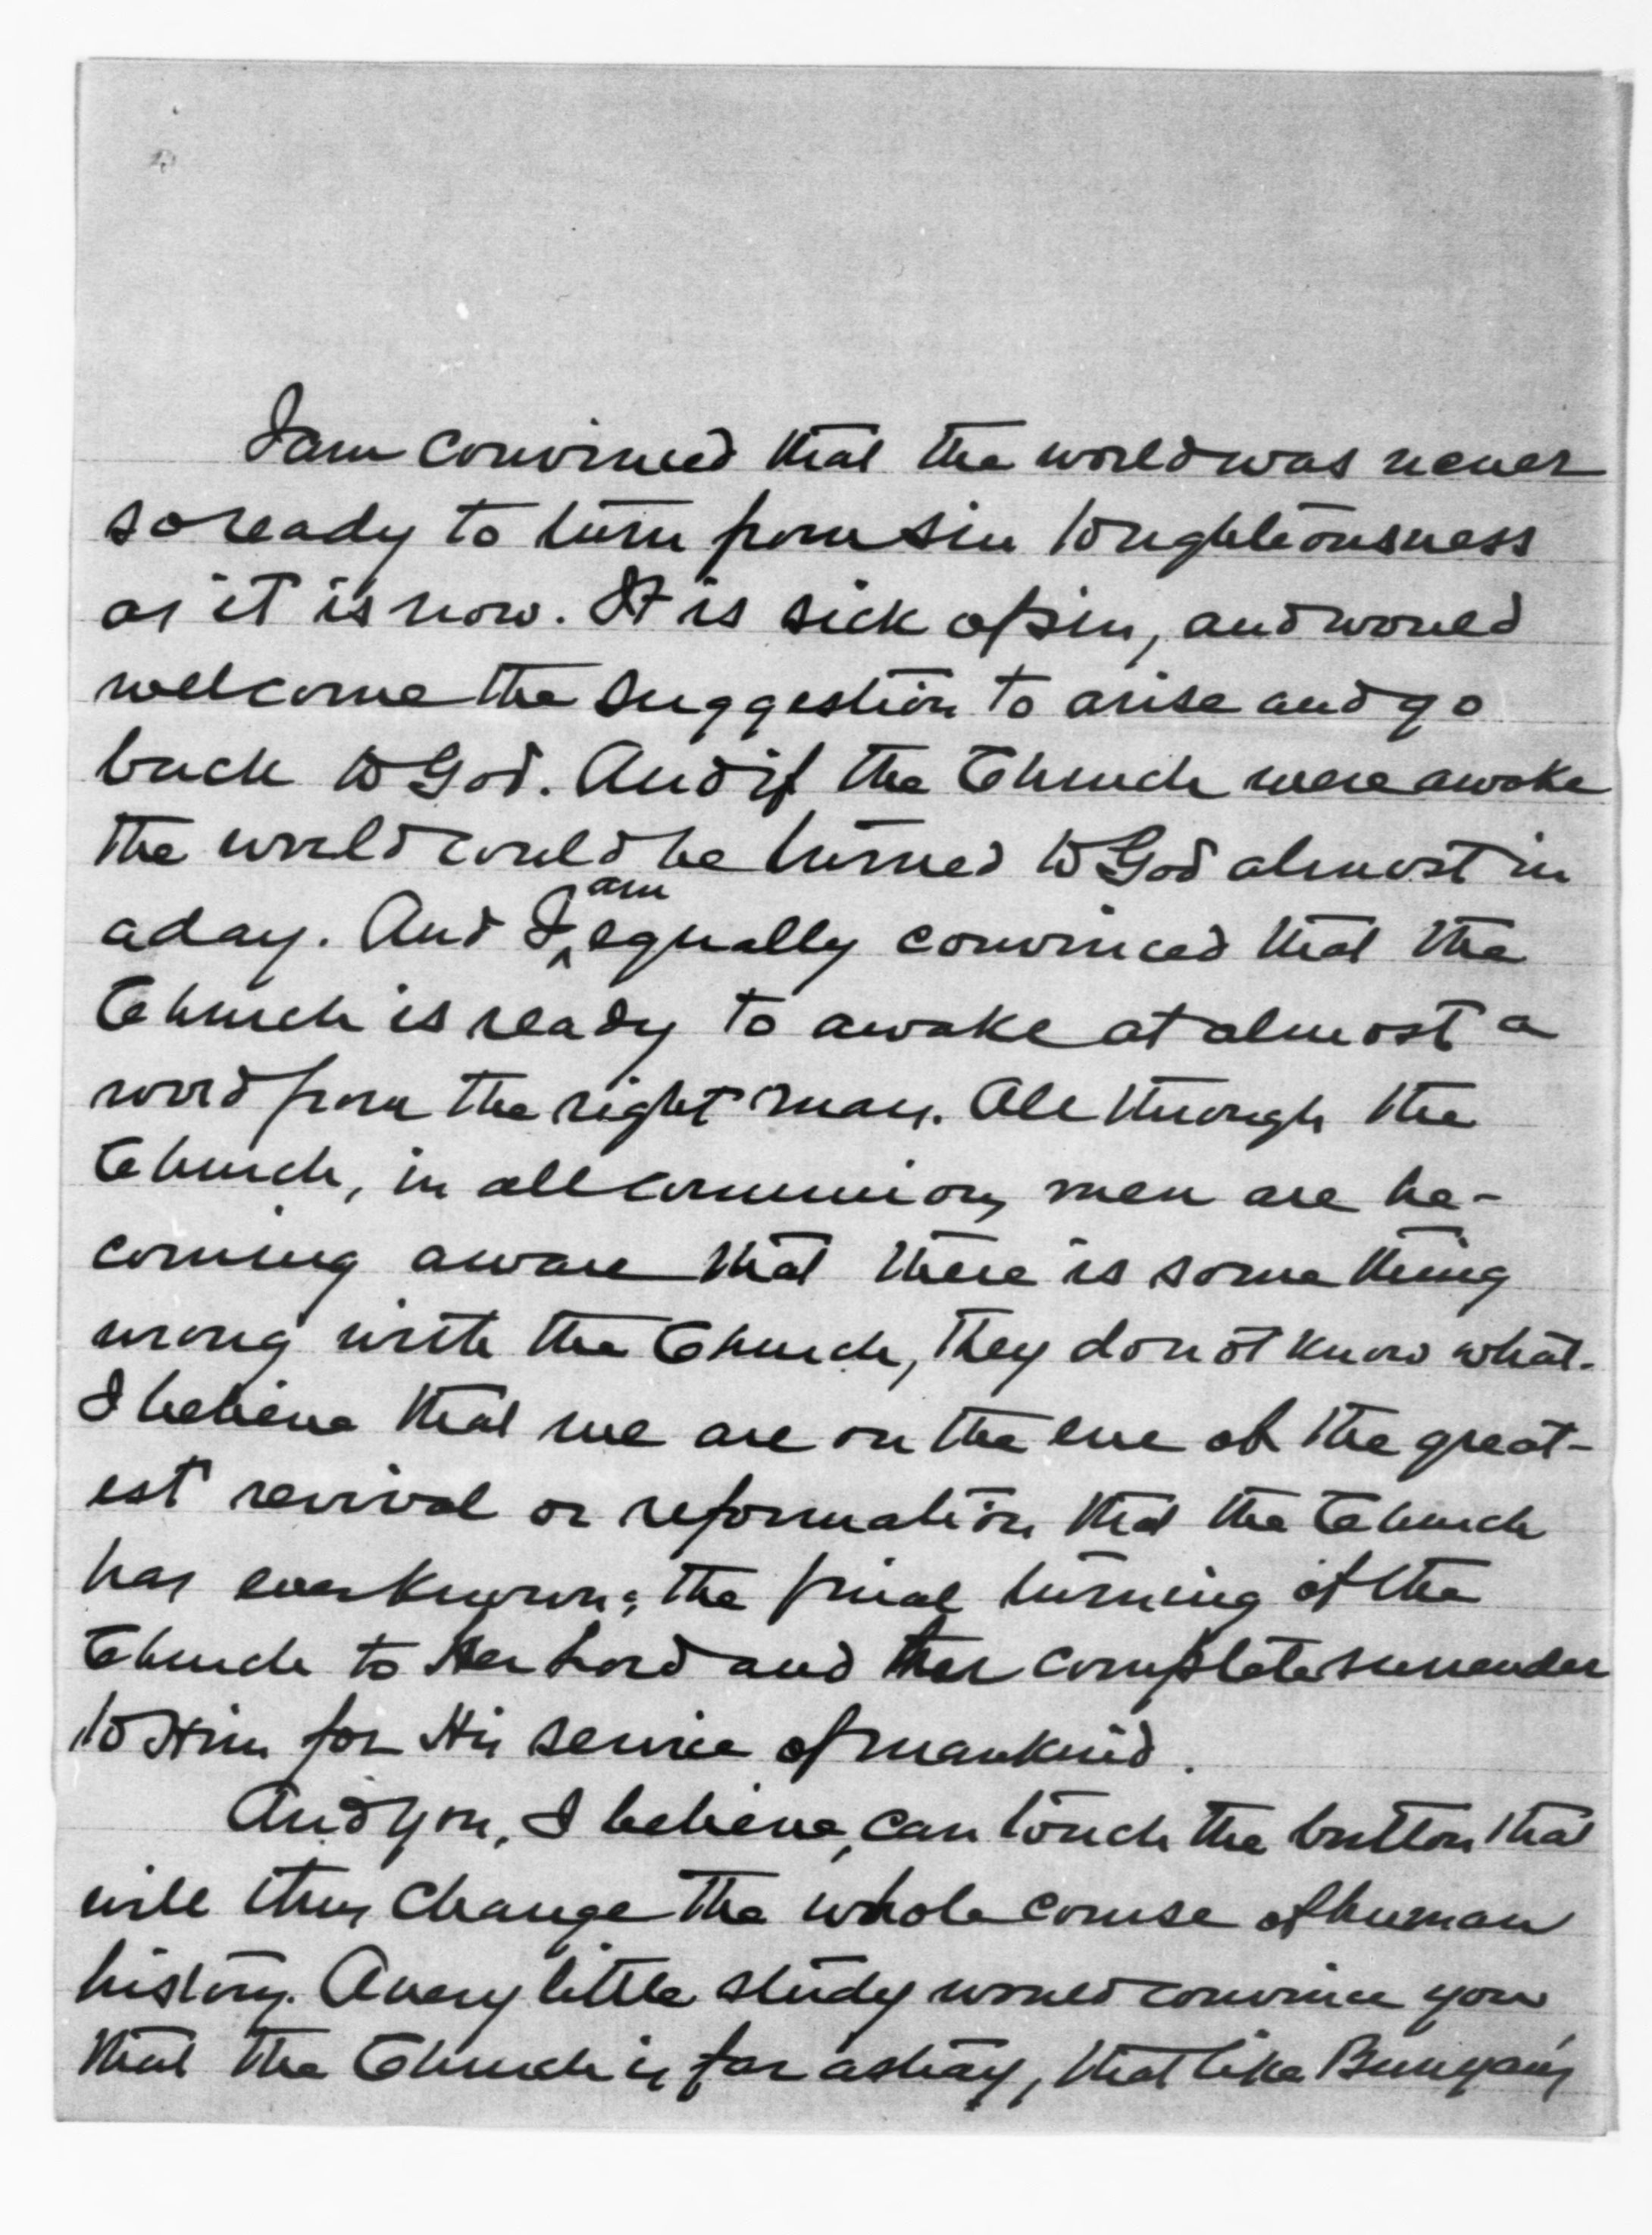 I am convinced that the world was never
so ready to turn from sin to righteousness
as it is now. It is sick of sin, and would
welcome the suggestion to arise and go
back to God. And if the Church were awake
the world could be turned to God almost in
a day. And I am equally convinced that the
Church is ready to awake at almost a
word from the right man. All through the
Church, in all communions, men are be-
coming aware that there is something
wrong with the Church, they do not know what.
I believe that we are on the eve of the great-
est revival or reformation that the Church
has ever known; the final turning of the
Church to Her Lord and Her complete surrender
to Him for His service of mankind.
And you, I believe, can touch the button that
will thus change the whole course of human
history. A very little study would convince you
that the Church is far astray, that like Bunyan's